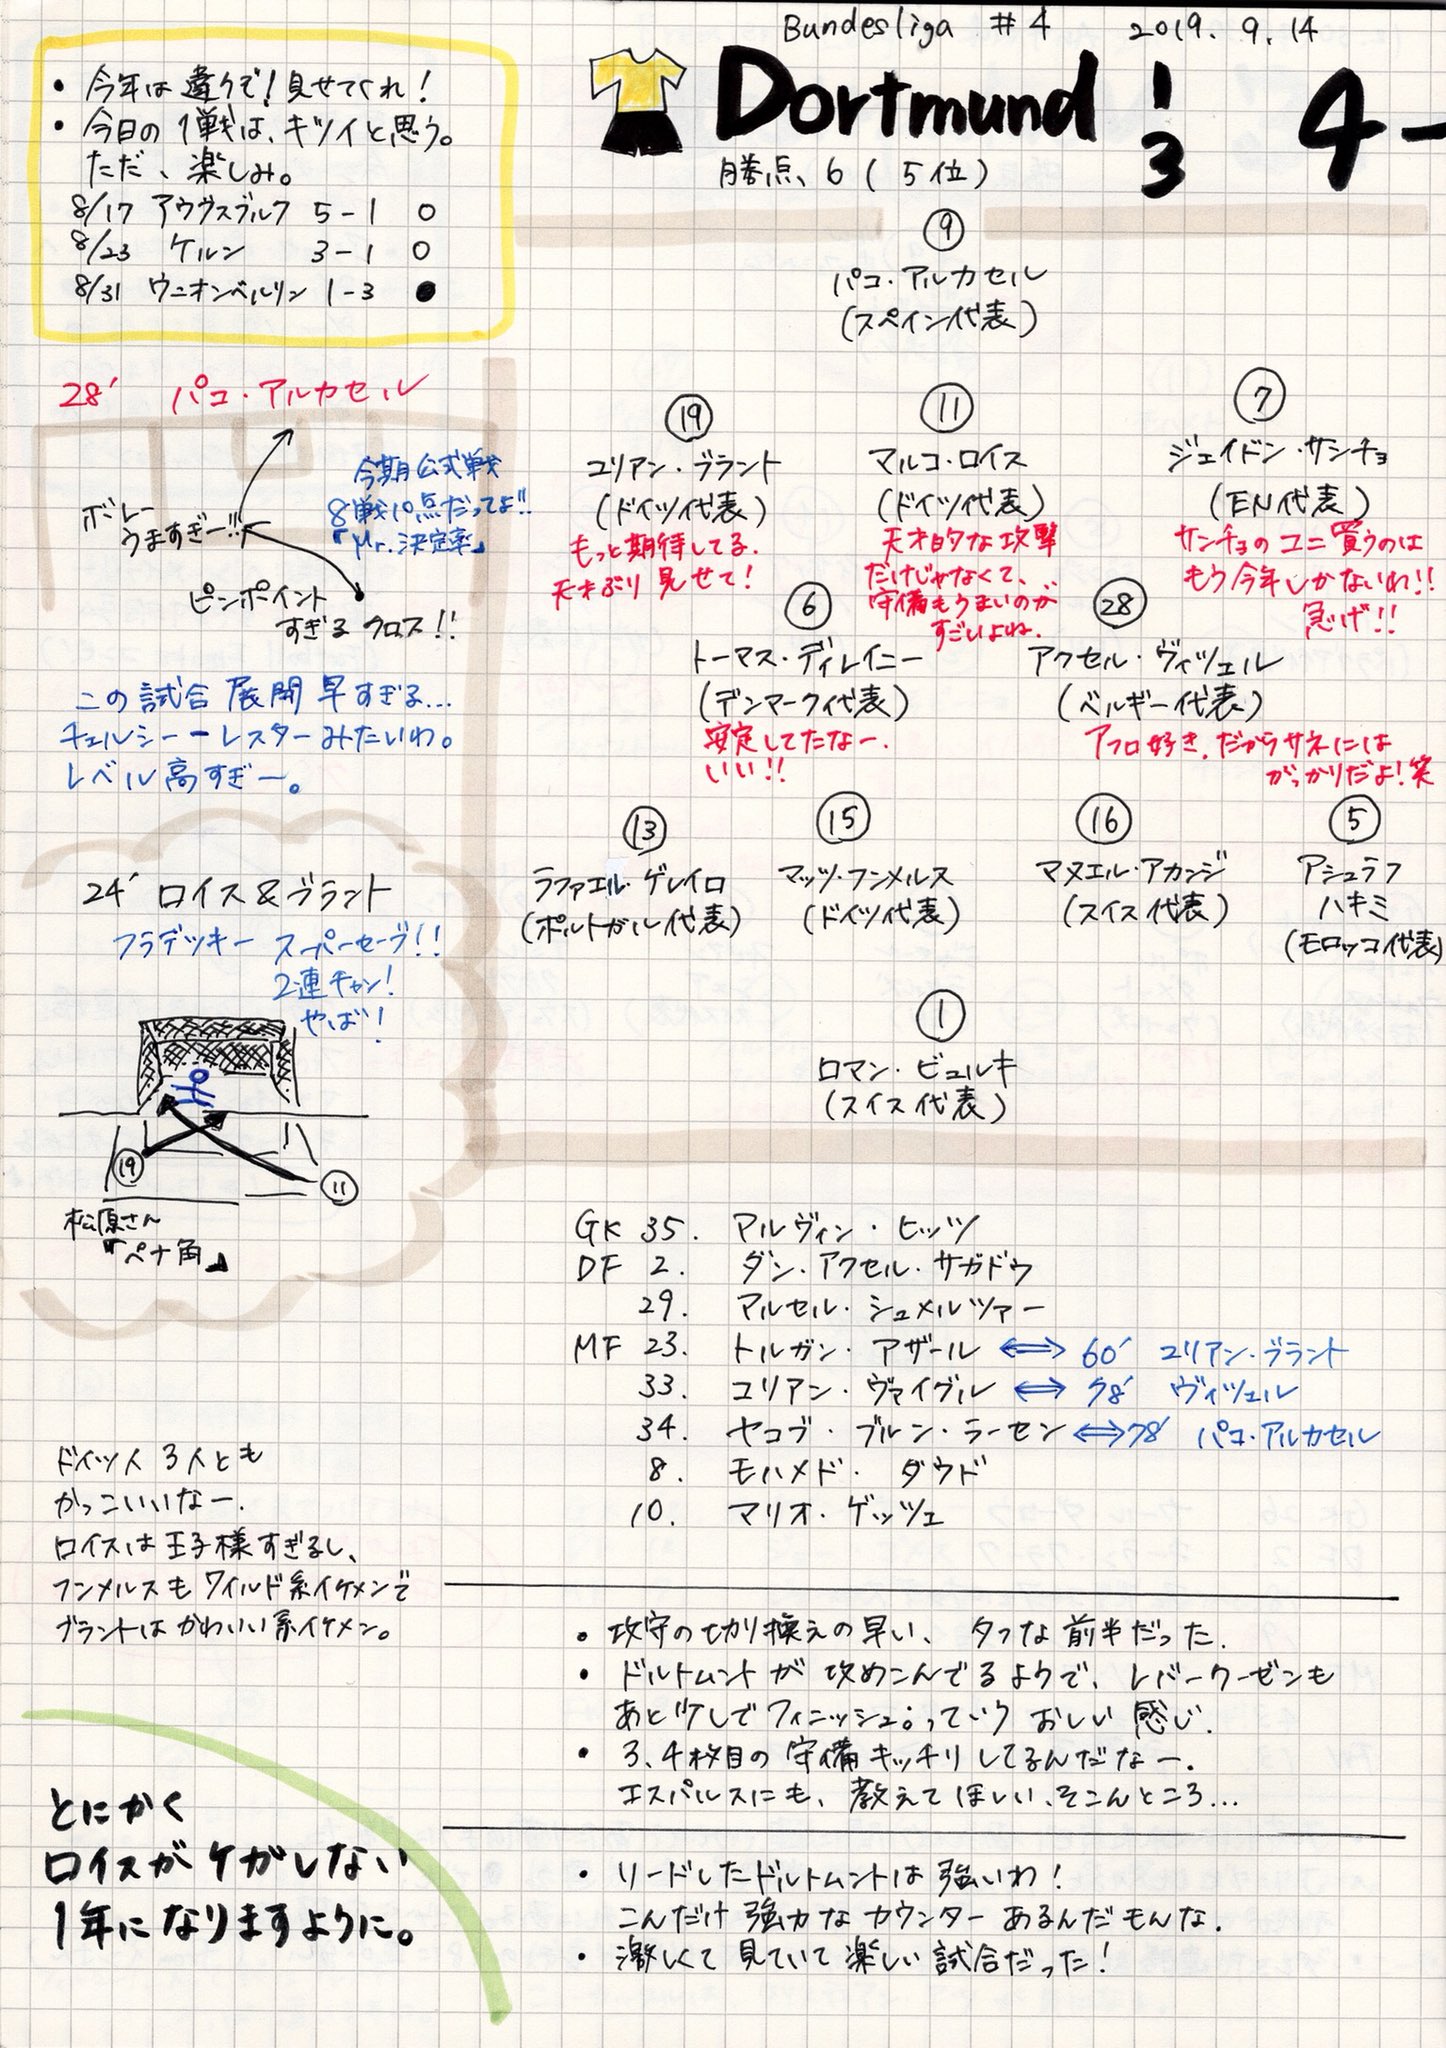 Bundesliga #4 2019. 9. 14
Dortmund 1 4-
3
勝点、6 (5位)
・今年は違うぞ!見せてくれ!
・今日の1戦は、キツイと思う。
ただ、楽しみ。
8/17 アウグスブルク 5-1 ○
8/23 ケルン 3-1 ○
8/31 ウニオンベルリン 1-3 ●
⑨
パコ・アルカセル
(スペイン代表)
⑲
ユリアン・ブラント
(ドイツ代表)
もっと期待してる.
天才ぶり見せて!
⑪
マルコ・ロイス
(ドイツ代表)
天才的な攻撃
だけじゃなくて、
守備もうまいのが
すごいよね.
⑦
ジェイドン・サンチョ
(EN代表)
サンチョのユニ買うのは
もう今年しかないわ!!
急げ!!
⑥
トーマス・ディレイニー
(デンマーク代表)
安定してたなー.
いい!!
㉘
アクセル・ヴィツェル
(ベルギー代表)
アフロ好き.だからサネには
がっかりだよ!笑
⑬
ラファエル・ゲレイロ
(ポルトガル代表)
⑮
マッツ・フンメルス
(ドイツ代表)
⑯
マヌエル・アカンジ
(スイス代表)
⑤
アシュラフ
ハキミ
(モロッコ代表)
①
ロマン・ビュルキ
(スイス代表)
28′ パコ・アルカセル
今期公式戦
8戦10点だってよ!!
『Mr.決定率』
ボレー
うますぎー!!
ピンポイント
すぎる クロス!!
この試合展開早すぎる...
チェルシーーレスターみたいわ。
レベル高すぎー。
24′ ロイス&ブラント
フラデッキー スーパーセーブ!!
2連チャン!
やば!
⑲
⑪
松原さん
『ペナ角』
GK 35. アルヴィン・ヒッツ
DF 2. ダン・アクセル・サガドゥ
29. マルセル・シュメルツァー
MF 23. トルガン・アザール ⟺ 60′ ユリアン・ブラント
33. ユリアン・ヴァイグル ⟺ 78′ ヴィツェル
34. ヤコブ・ブルン・ラーセン ⟺ 78′ パコ・アルカセル
8. モハメド・ダウド
10. マリオ・ゲッツェ
ドイツ人3人とも
かっこいいなー.
ロイスは王子様すぎるし、
フンメルスもワイルド系イケメンで
ブラントはかわいい系イケメン。
・攻守の切り換えの早い、タフな前半だった.
・ドルトムントが攻めこんでるようで、レバークーゼンも
あと少しでフィニッシュ。っていう おしい感じ.
・3、4枚目の守備キッチリしてるんだなー.
エスパルスにも、教えてほしい、そこんところ...
・リードしたドルトムントは強いわ!
こんだけ強力なカウンターあるんだもんな.
・激しくて見ていて楽しい試合だった!
とにかく
ロイスがケガしない
1年になりますように。